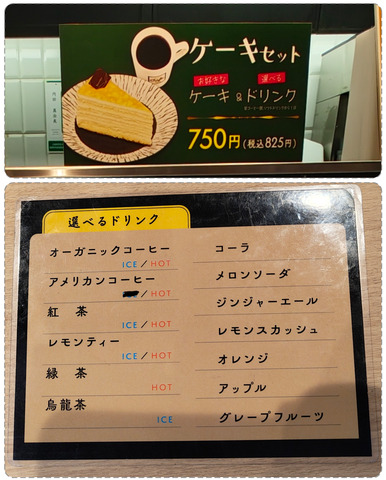 ケーキセット
お好きな 選べる
ケーキ & ドリンク
750円(税込825円)
選べるドリンク
オーガニックコーヒー
ICE/HOT
アメリカンコーヒー
/HOT
紅 茶
ICE/HOT
レモンティー
ICE/HOT
緑 茶
HOT
烏龍茶
ICE
コーラ
メロンソーダ
ジンジャーエール
レモンスカッシュ
オレンジ
アップル
グレープフルーツ